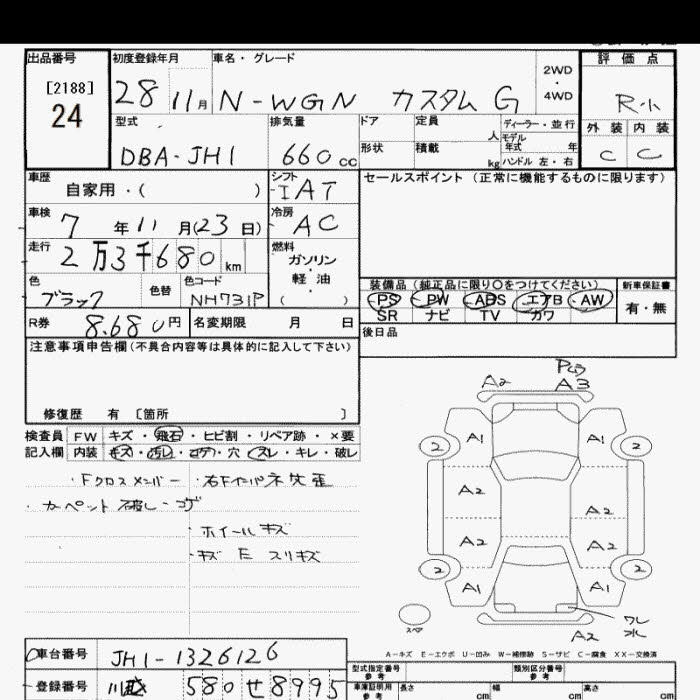 出品番号
[2188]
24
初度登録年月
28 11月
車名・グレード
N-WGN カスタム G
2WD
・
4WD
評価点
R-小
外装 内装
C C
型式
DBA-JH1
排気量
660cc
ドア
形状
定員
人
積載
kg
ディーラー・並行
モデル
年式 年
ハンドル 左・右
車歴
自家用・( )
シフト
IAT
セールスポイント (正常に機能するものに限ります)
車検
7年11月(23日)
冷房
AC
走行
2万3千680km
燃料
ガソリン
・
軽油
( )
色
ブラック
色替
色コード
NH731P
装備品(純正品に限り○をつけてください)
PS・PW・ABS・エアB・AW
SR ナビ TV カワ
新車保証書
有・無
R券
8,680円
名変期限 月 日
後日品
注意事項申告欄(不具合内容等は具体的に記入して下さい)
修復歴 有 〔箇所 〕
検査員
記入欄
FW キズ・飛石・ヒビ割・リペア跡・×要
内装 キズ・汚レ・コゲ・穴・スレ・キレ・破レ
・Fクロスメンバー ・右Fインパネ先歪
・カーペット破レ・コゲ
・ホイールキズ
・キズ E スリキズ
A2
A3
2
A1
A1
2
A2
A2
A2
A2
2
A1
A1
2
スペア
ワレ
A2
A-キズ E-エクボ U-凹み W-補修跡 S-サビ C-腐食 XX-交換済
車台番号
JH1-1326126
型式指定番号
参考
類別区分番号
参考
登録番号
川越 580 せ 8995
車庫証明用
参考
長さ cm
幅 cm
高さ cm